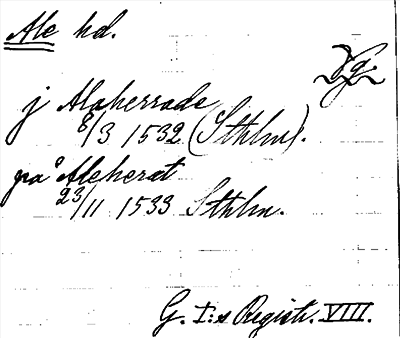 Ale hd.
Vg.
j Aleherrade
8/3 1532 (Sthlm).
på Aleheret
23/11 1533 Sthlm.
G. I:s Registr. VIII.